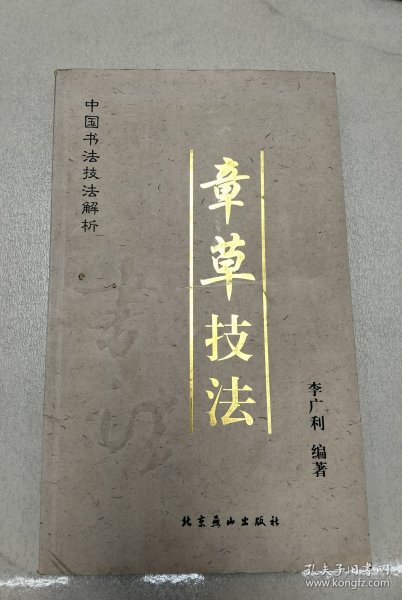 中国书法技法解析
章草技法
李广利 编著
北京燕山出版社
孔夫子旧书网
www.kongfz.com